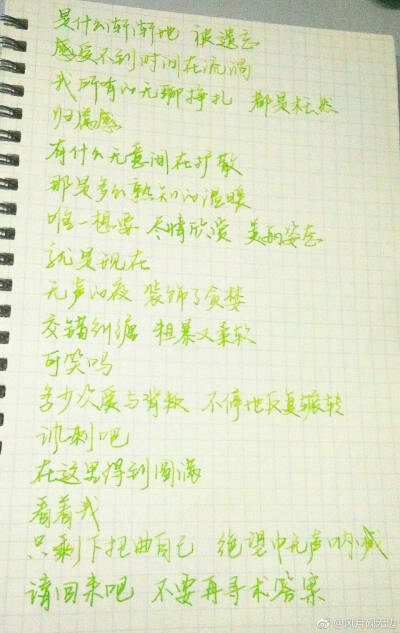 是什么渐渐地 被遗忘
感受不到时间在流淌
我所有的无聊挣扎 都是枉然
归属感
有什么无意间在扩散
那是多么熟知的温暖
唯一想要 尽情欣赏 美的姿态
就是现在
无声的夜 装饰了贪婪
交错纠缠 粗暴又柔软
可笑吗
多少次爱与背叛 不停地反复辗转
讽刺吧
在这里得到圆满
看着我
只剩下扭曲自己 绝望中无声呐喊
请回来吧 不要再寻求答案